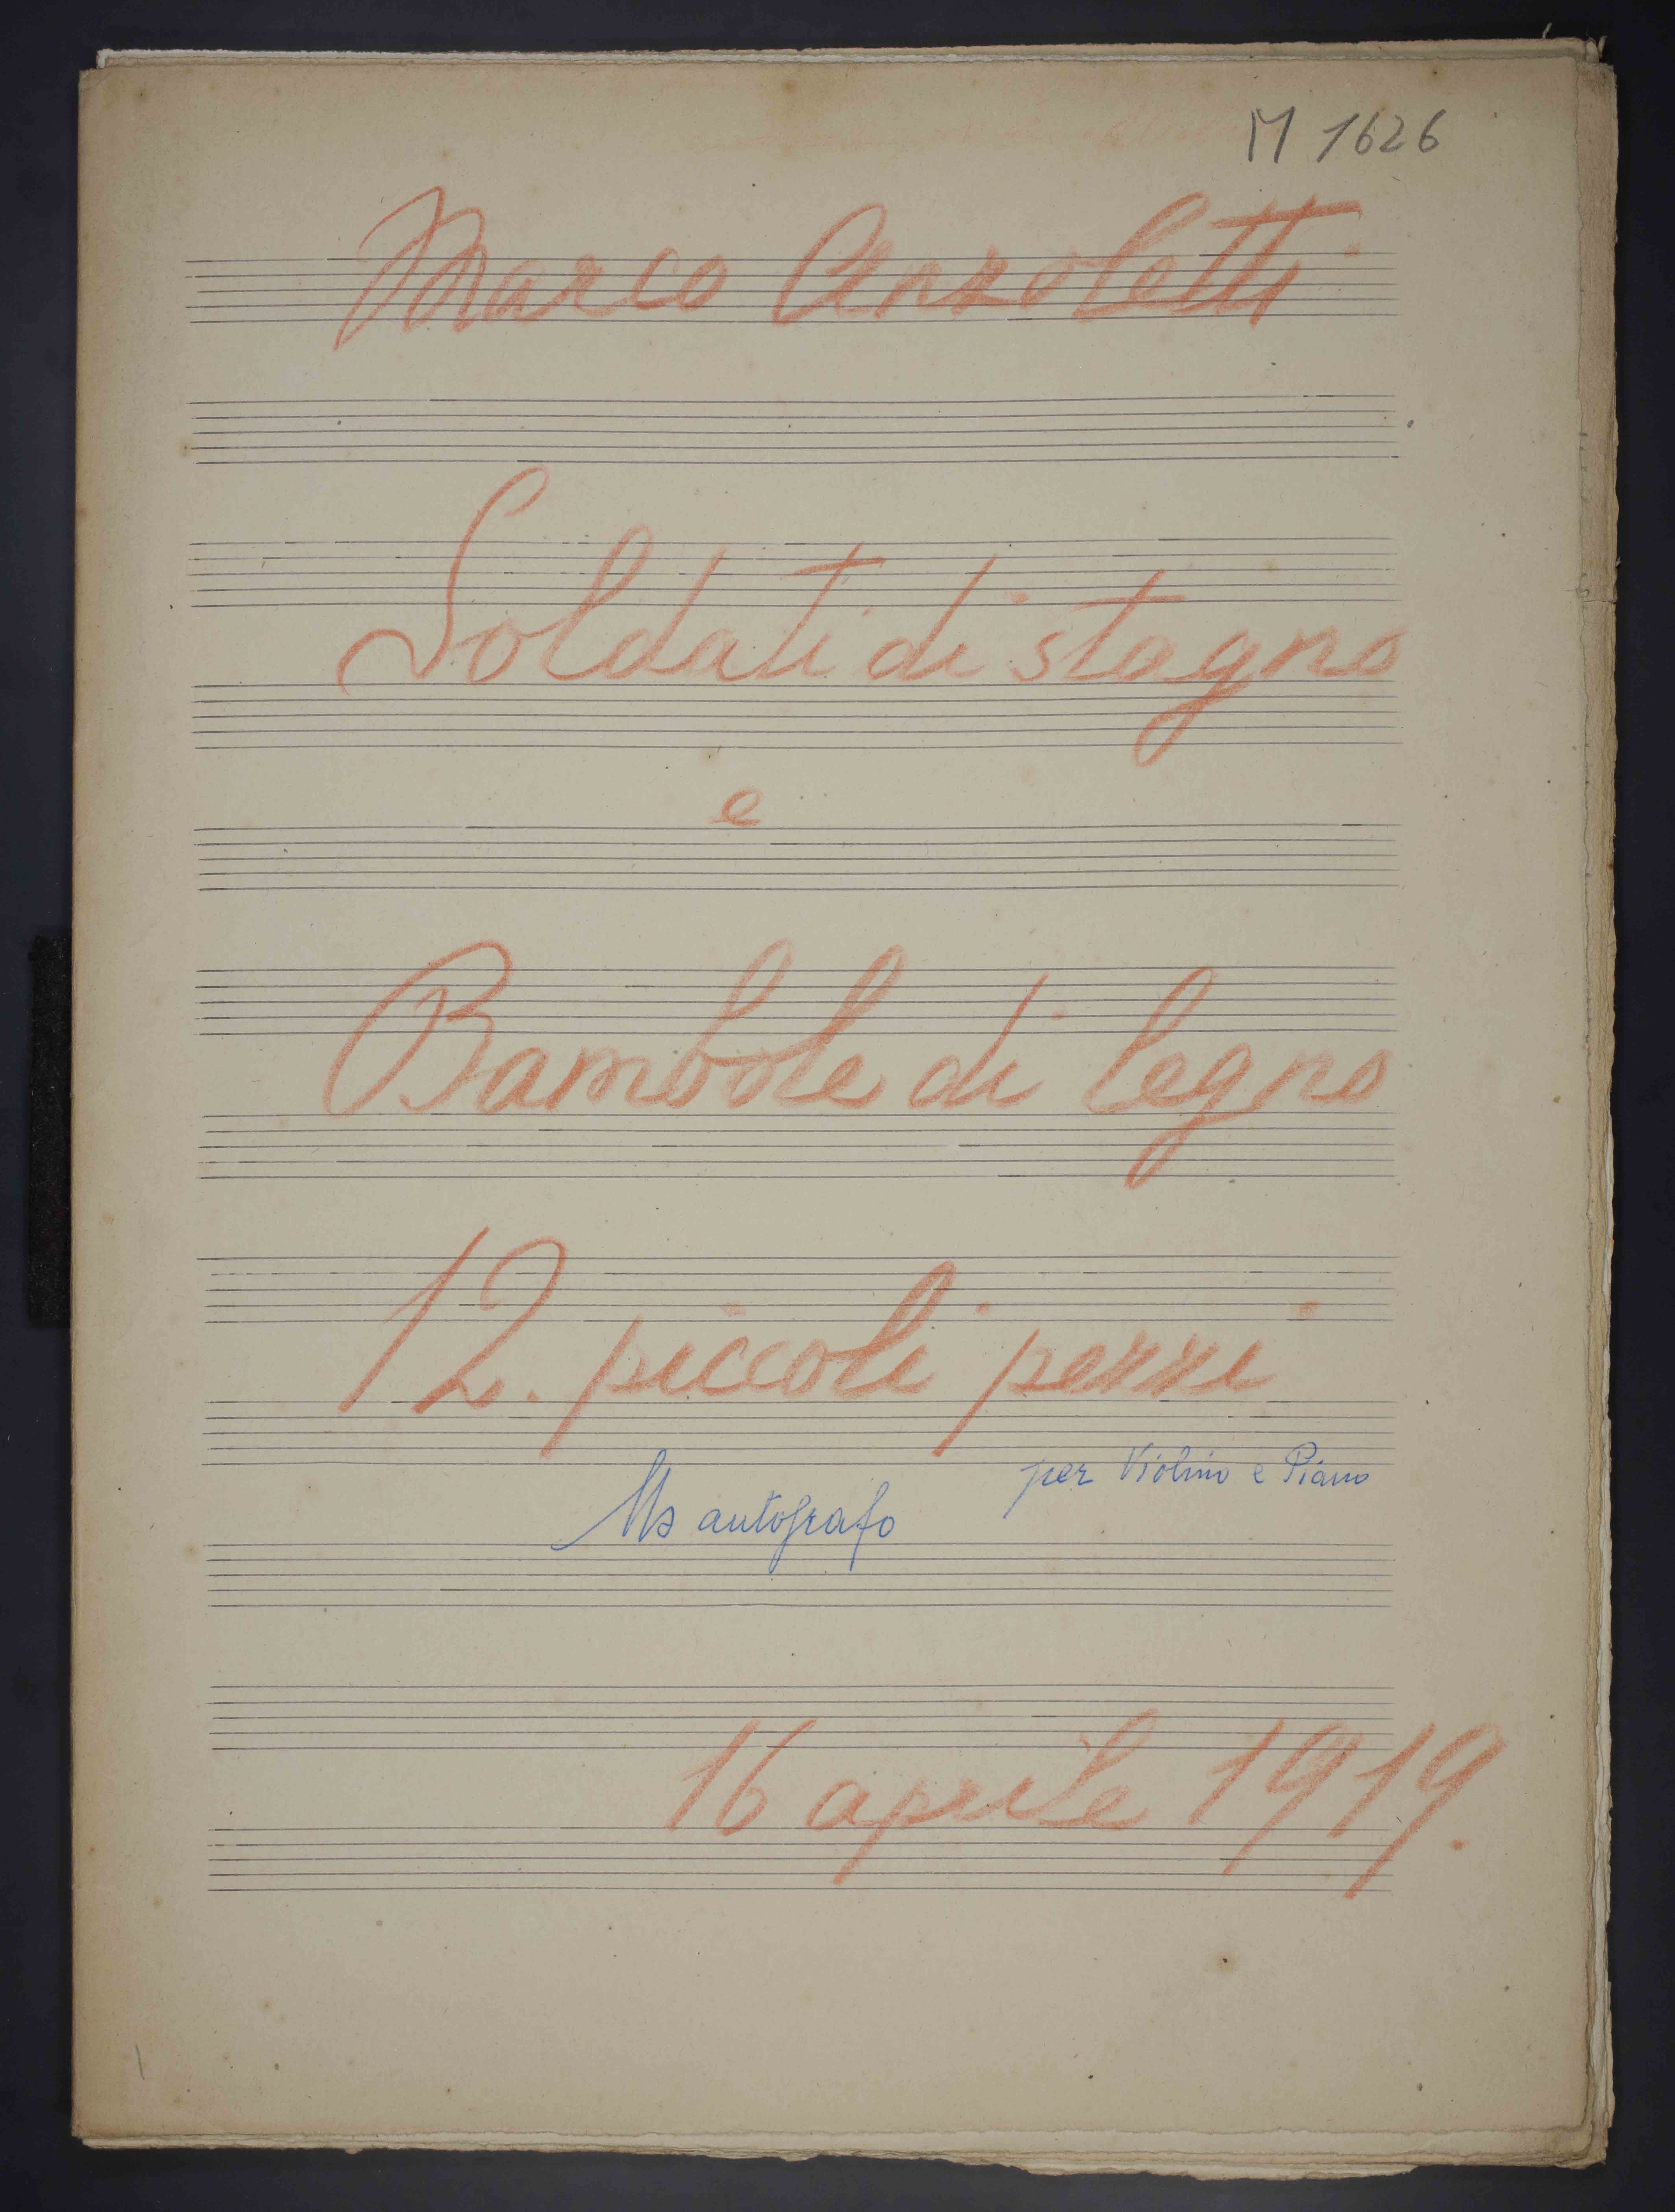 M 1626
Marco Anzoletti
Soldati di stagno
e
Bambole di legno
12. piccoli pezzi
per Violino e Piano
Ms autografo
16 aprile 1919.